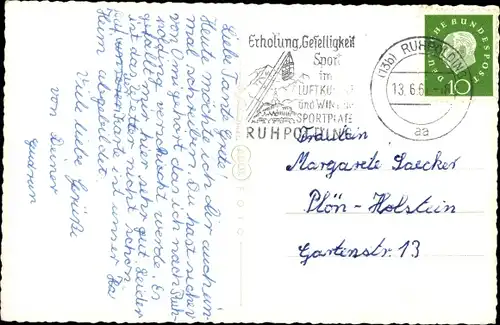 Liebe Tante Grete!
Heute möchte ich Dir auch ein-
mal schreiben. Du hast sicher
von Omi gehört das ich nach Ruh-
polding verschickt werde. Es
gefällt mir hier sehr gut leider
ist das Wetter nicht schön.
Auf Karte ist unser
Heim abgebildet.
Viele liebe Grüße
von Deiner
Gudrun
Erholung, Geselligkeit
Sport
im
LUFTKURORT
und WINTER-
SPORTPLATZ
RUHPOLDING
(13b) RUHPOLDING
13.6.6
aa
DEUTSCHE BUNDESPOST
10
FOTO
Fräulein
Margarete Jaecker
Plön-Holstein
Gartenstr. 13